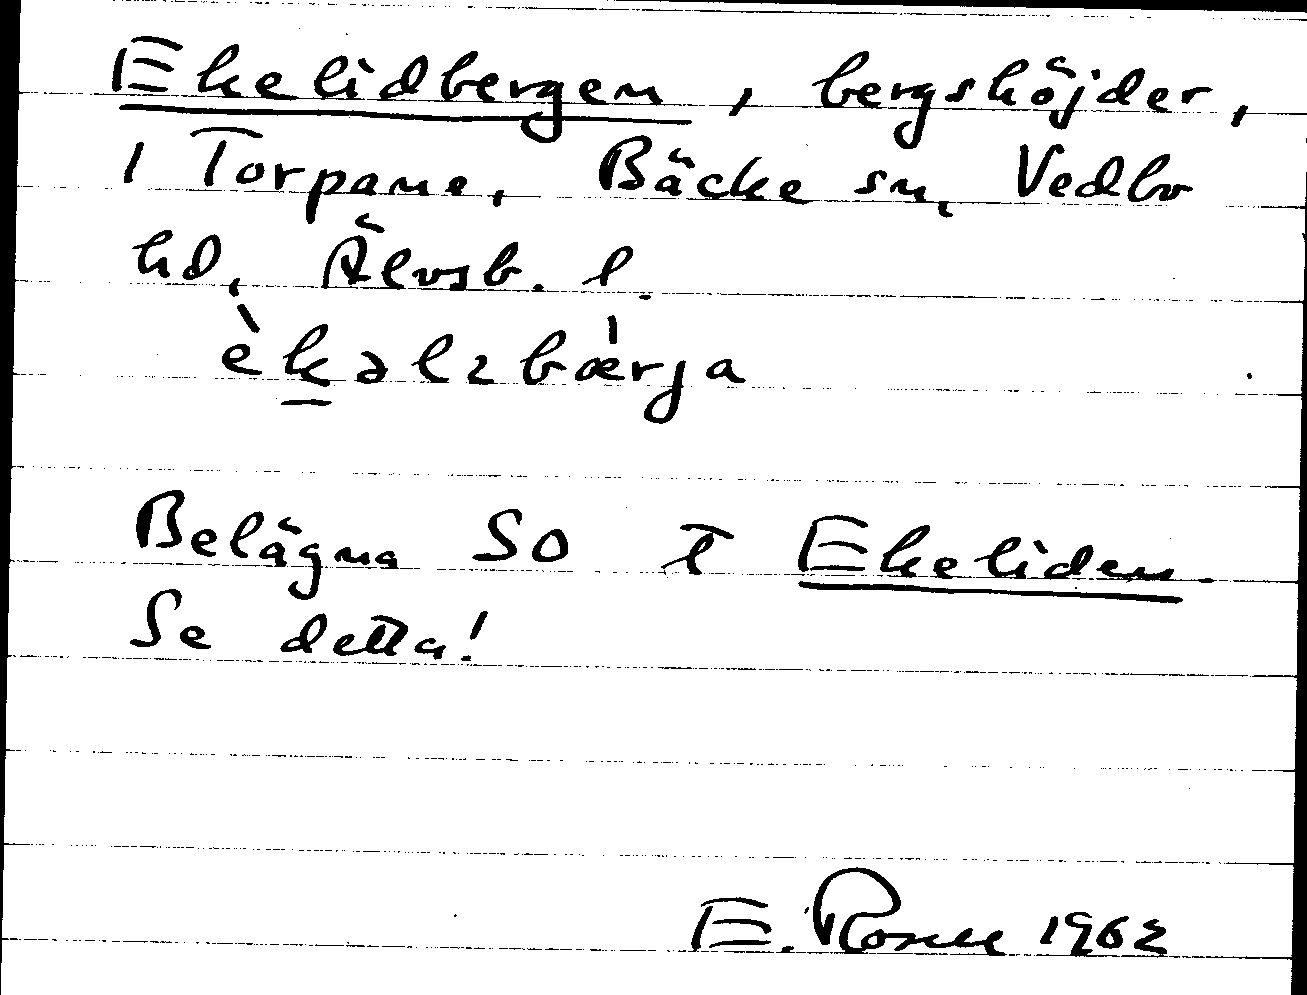 Ekelidbergen, bergshöjder,
i Torpane, Bäcke sn, Vedbo
hd, Älvsb. l.
èkəlzbær̍ja
Belägna SO t Ekeliden.
Se detta!
E. Rosell 1962